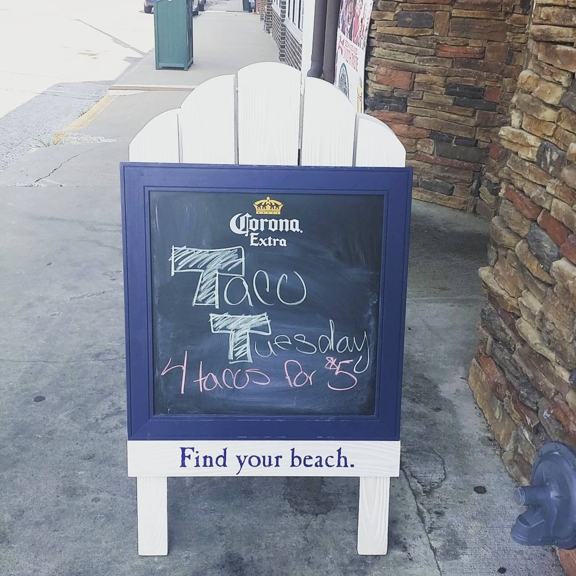 Corona
Extra
Taco
Tuesday
4 tacos for $5
Find your beach.